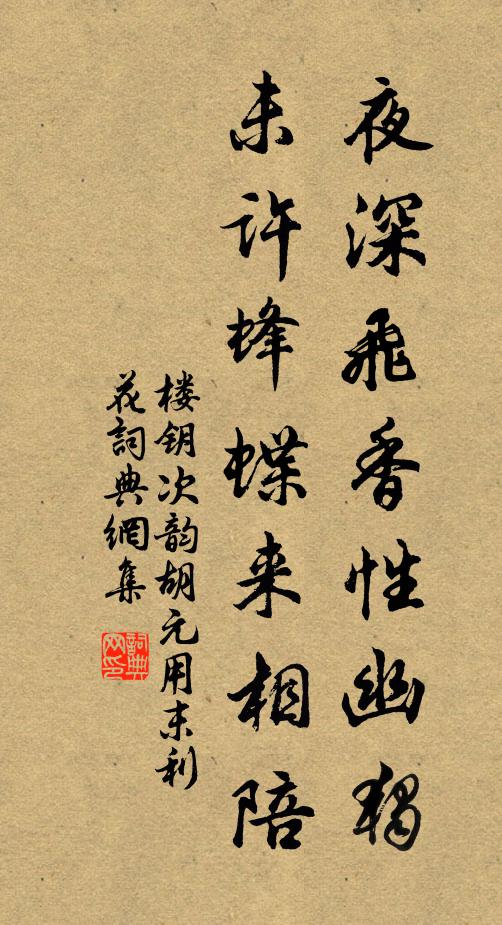 夜深飛香性幽獨
未許蜂蝶来相陪
楼钥次韵胡元用末利
花詞典網集
詞典
网印